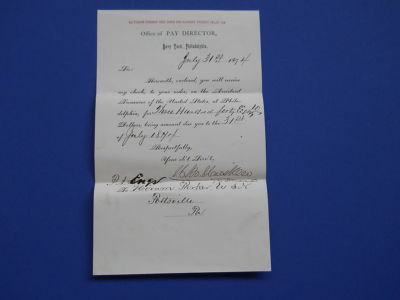 Office of PAY DIRECTOR,
Navy Yard, Philadelphia,
July 31st, 1874
Sir:
Herewith, enclosed, you will receive
my check to your order, on the Assistant
Treasurer of the United States at Phila-
delphia, for Three Hundred and forty Eight
Dollars, being amount due you to the 31st
of July 1874
Respectfully,
Your Ob't Serv't,
P. A. Engr
Pottsville
Pa